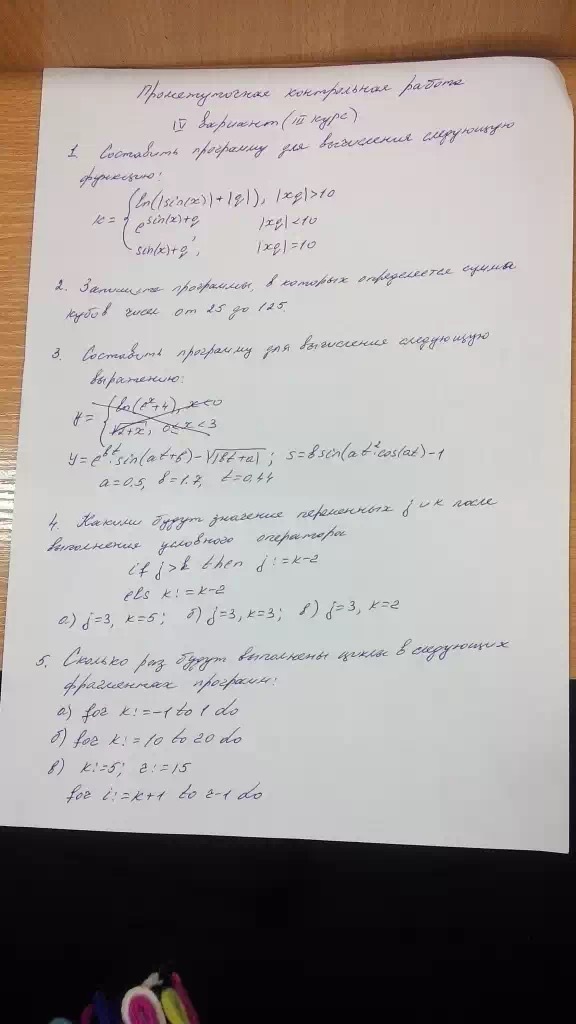 Промежуточная контрольная работа
IV вариант (III курс)
1. Составить программу для вычисления следующую
функцию:
k = { ln(|sin(x)| + |q|), |xq| > 10
e^sin(x)+q, |xq| < 10
sin(x)+q, |xq| = 10
2. Запишите программы, в которых определяется сумма
кубов чисел от 25 до 125.
3. Составить программу для вычисления следующую
выражению:
y = { ln(e^x+4), x<0
√2+x, 0≤x<3
y = e^bt · sin(at+b) - √|bt+a| ; s = b sin(at^2·cos(at)-1
a=0.5, b=1.7, t=0,44
4. Какими будут значение переменных j и k после
выполнения условного оператора
if j>k then j:=k-2
els k:=k-2
а) j=3, k=5; б) j=3, k=3; в) j=3, k=2
5. Сколько раз будут выполнены циклы в следующих
фрагментах программ:
а) for k:=-1 to 1 do
б) for k:=10 to 20 do
в) k:=5; r:=15
for i:=k+1 to r-1 do